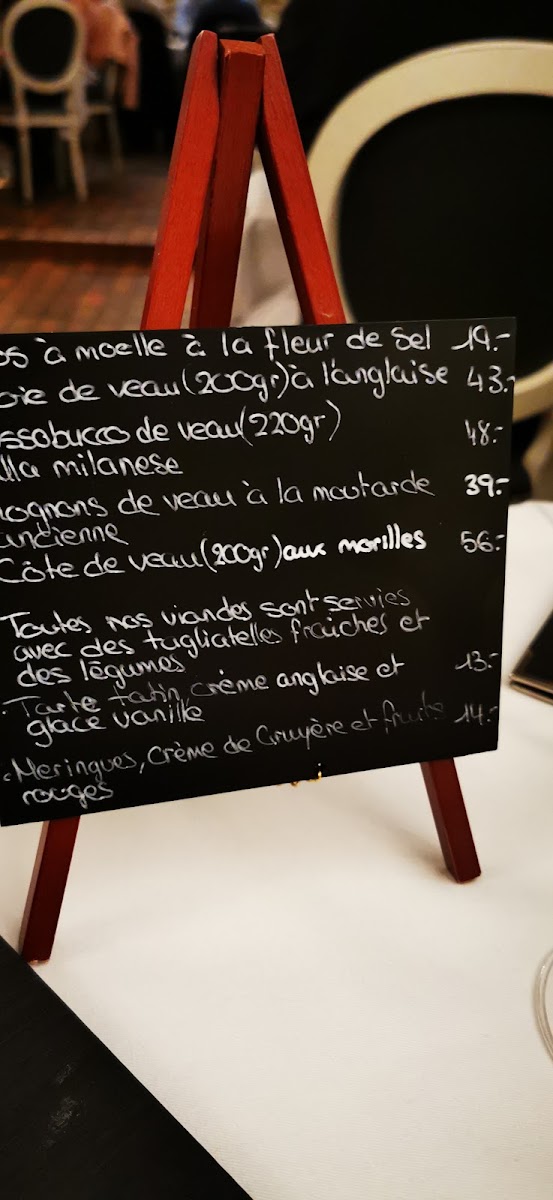 os à moelle à la fleur de sel 19.-
oie de veau (200gr) à l'anglaise 43.-
ssobucco de veau (220gr) 48.-
lla milanese
ognons de veau à la moutarde 39.-
ancienne
Côte de veau (200gr) aux morilles 56.-
Toutes nos viandes sont servies
avec des tagliatelles fraîches et
des légumes
. Tarte tatin, crème anglaise et 13.-
glace vanille
. Meringues, Crème de Gruyère et fruits 14.-
rouges